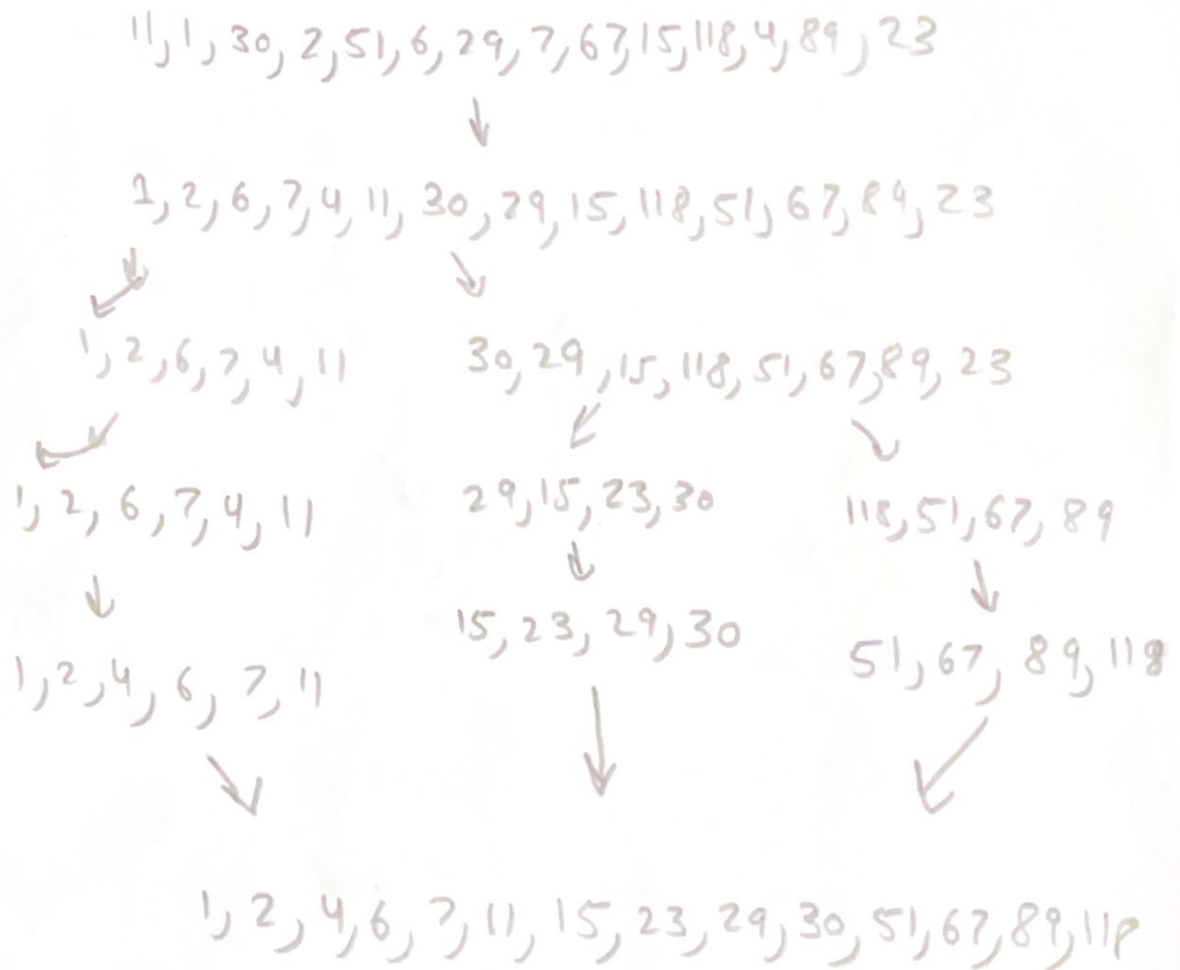 11, 1, 30, 2, 51, 6, 29, 7, 67, 15, 118, 4, 89, 23
1, 2, 6, 7, 4, 11, 30, 29, 15, 118, 51, 67, 89, 23
1, 2, 6, 7, 4, 11
30, 29, 15, 118, 51, 67, 89, 23
1, 2, 6, 7, 4, 11
29, 15, 23, 30
118, 51, 67, 89
15, 23, 29, 30
1, 2, 4, 6, 7, 11
51, 67, 89, 118
1, 2, 4, 6, 7, 11, 15, 23, 29, 30, 51, 67, 89, 118